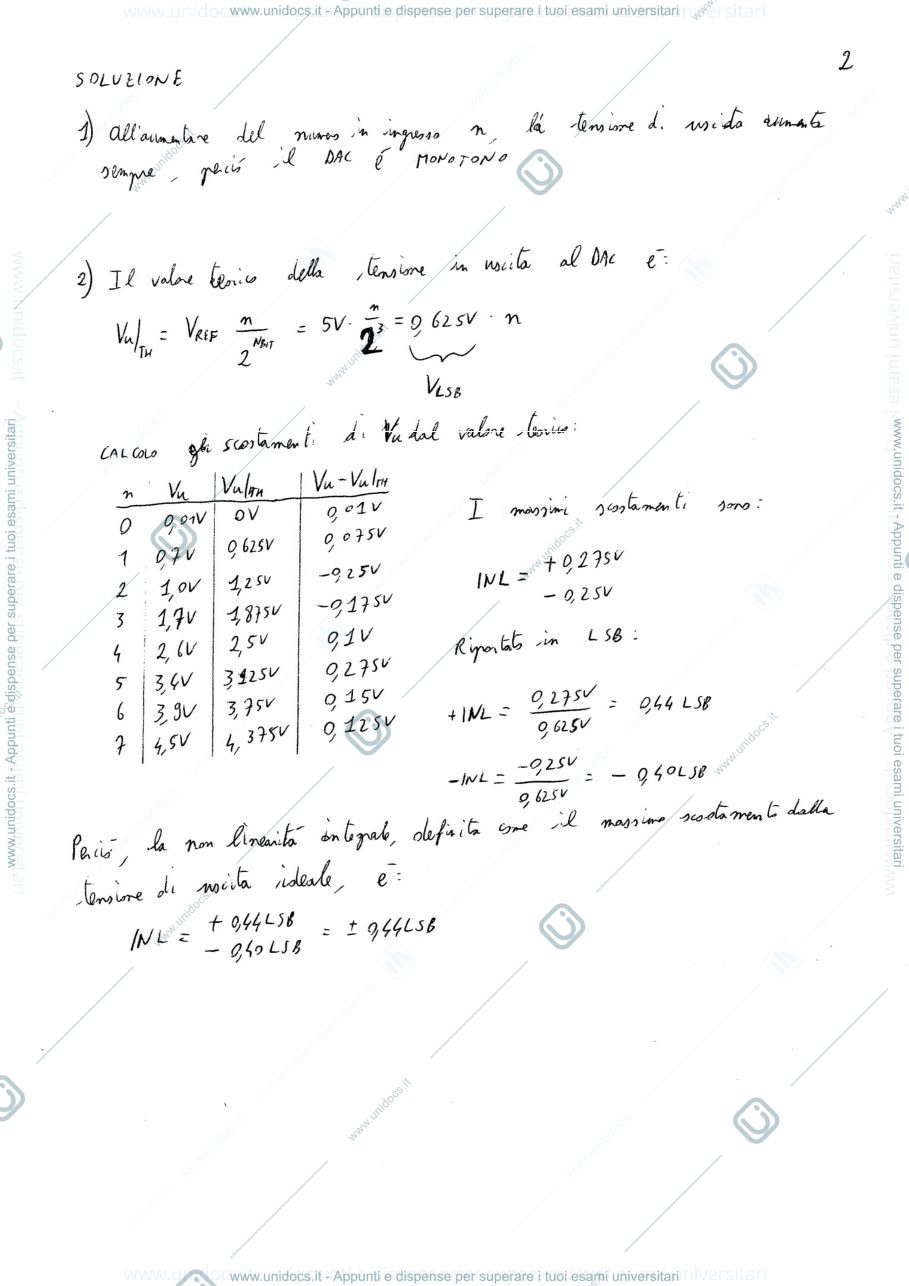 www.unidocs.it - Appunti e dispense per superare i tuoi esami universitari
2
SOLUZIONE
1) All'aumentare del numero in ingresso n, la tensione di uscita aumenta
sempre, perciò il DAC é MONOTONO
2) Il valore teorico della tensione in uscita al DAC è:
Vu|TH = VREF n/2^NBIT = 5V · n/2^3 = 0,625V · n
VLSB
CALCOLO gli scostamenti di Vu dal valore teorico:
n Vu Vu|TH Vu - Vu|TH
0 0,01V 0V 0,01V
1 0,7V 0,625V 0,075V
2 1,0V 1,25V -0,25V
3 1,7V 1,875V -0,175V
4 2,6V 2,5V 0,1V
5 3,4V 3,125V 0,275V
6 3,9V 3,75V 0,15V
7 4,5V 4,375V 0,125V
I massimi scostamenti sono:
INL = +0,275V
- 0,25V
Riportato in LSB:
+INL = 0,275V / 0,625V = 0,44 LSB
-INL = -0,25V / 0,625V = - 0,40LSB
Perciò, la non linearità integrale, definita come il massimo scostamento dalla
tensione di uscita ideale, è:
INL = + 0,44LSB
- 0,40LSB = ± 0,44LSB
www.unidocs.it - Appunti e dispense per superare i tuoi esami universitari
www.unidocs.it - Appunti e dispense per superare i tuoi esami universitari
www.unidocs.it - Appunti e dispense per superare i tuoi esami universitari